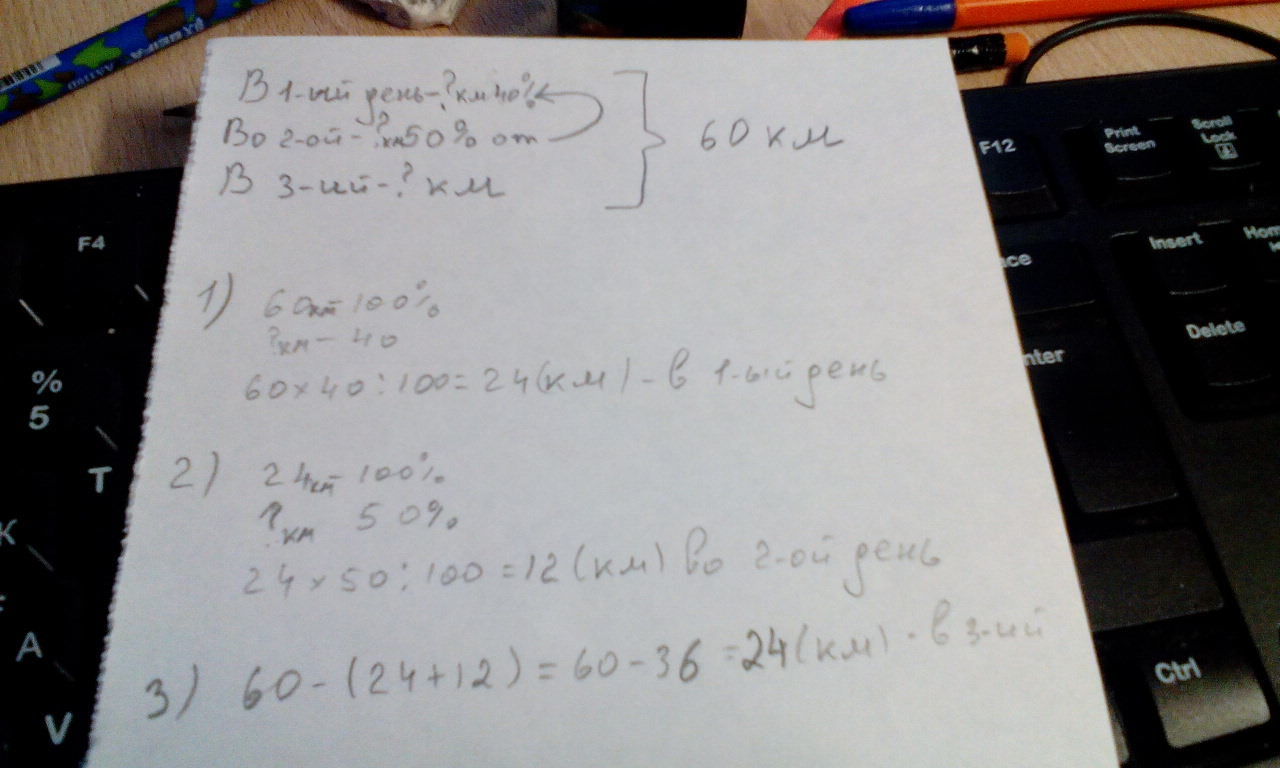 В 1-ый день-?км 40%
Во 2-ой-?км 50% от
В 3-ий-? км
60 км
1) 60км 100%
?км - 40
60×40:100=24(км)-в 1-ый день
2) 24км- 100%
?км 50%
24×50:100=12(км) во 2-ой день
3) 60-(24+12)=60-36=24(км)·в 3-ий
F4
%
5
T
A
V
F12
Print
Screen
Scroll
Lock
Insert
Delete
Ctrl